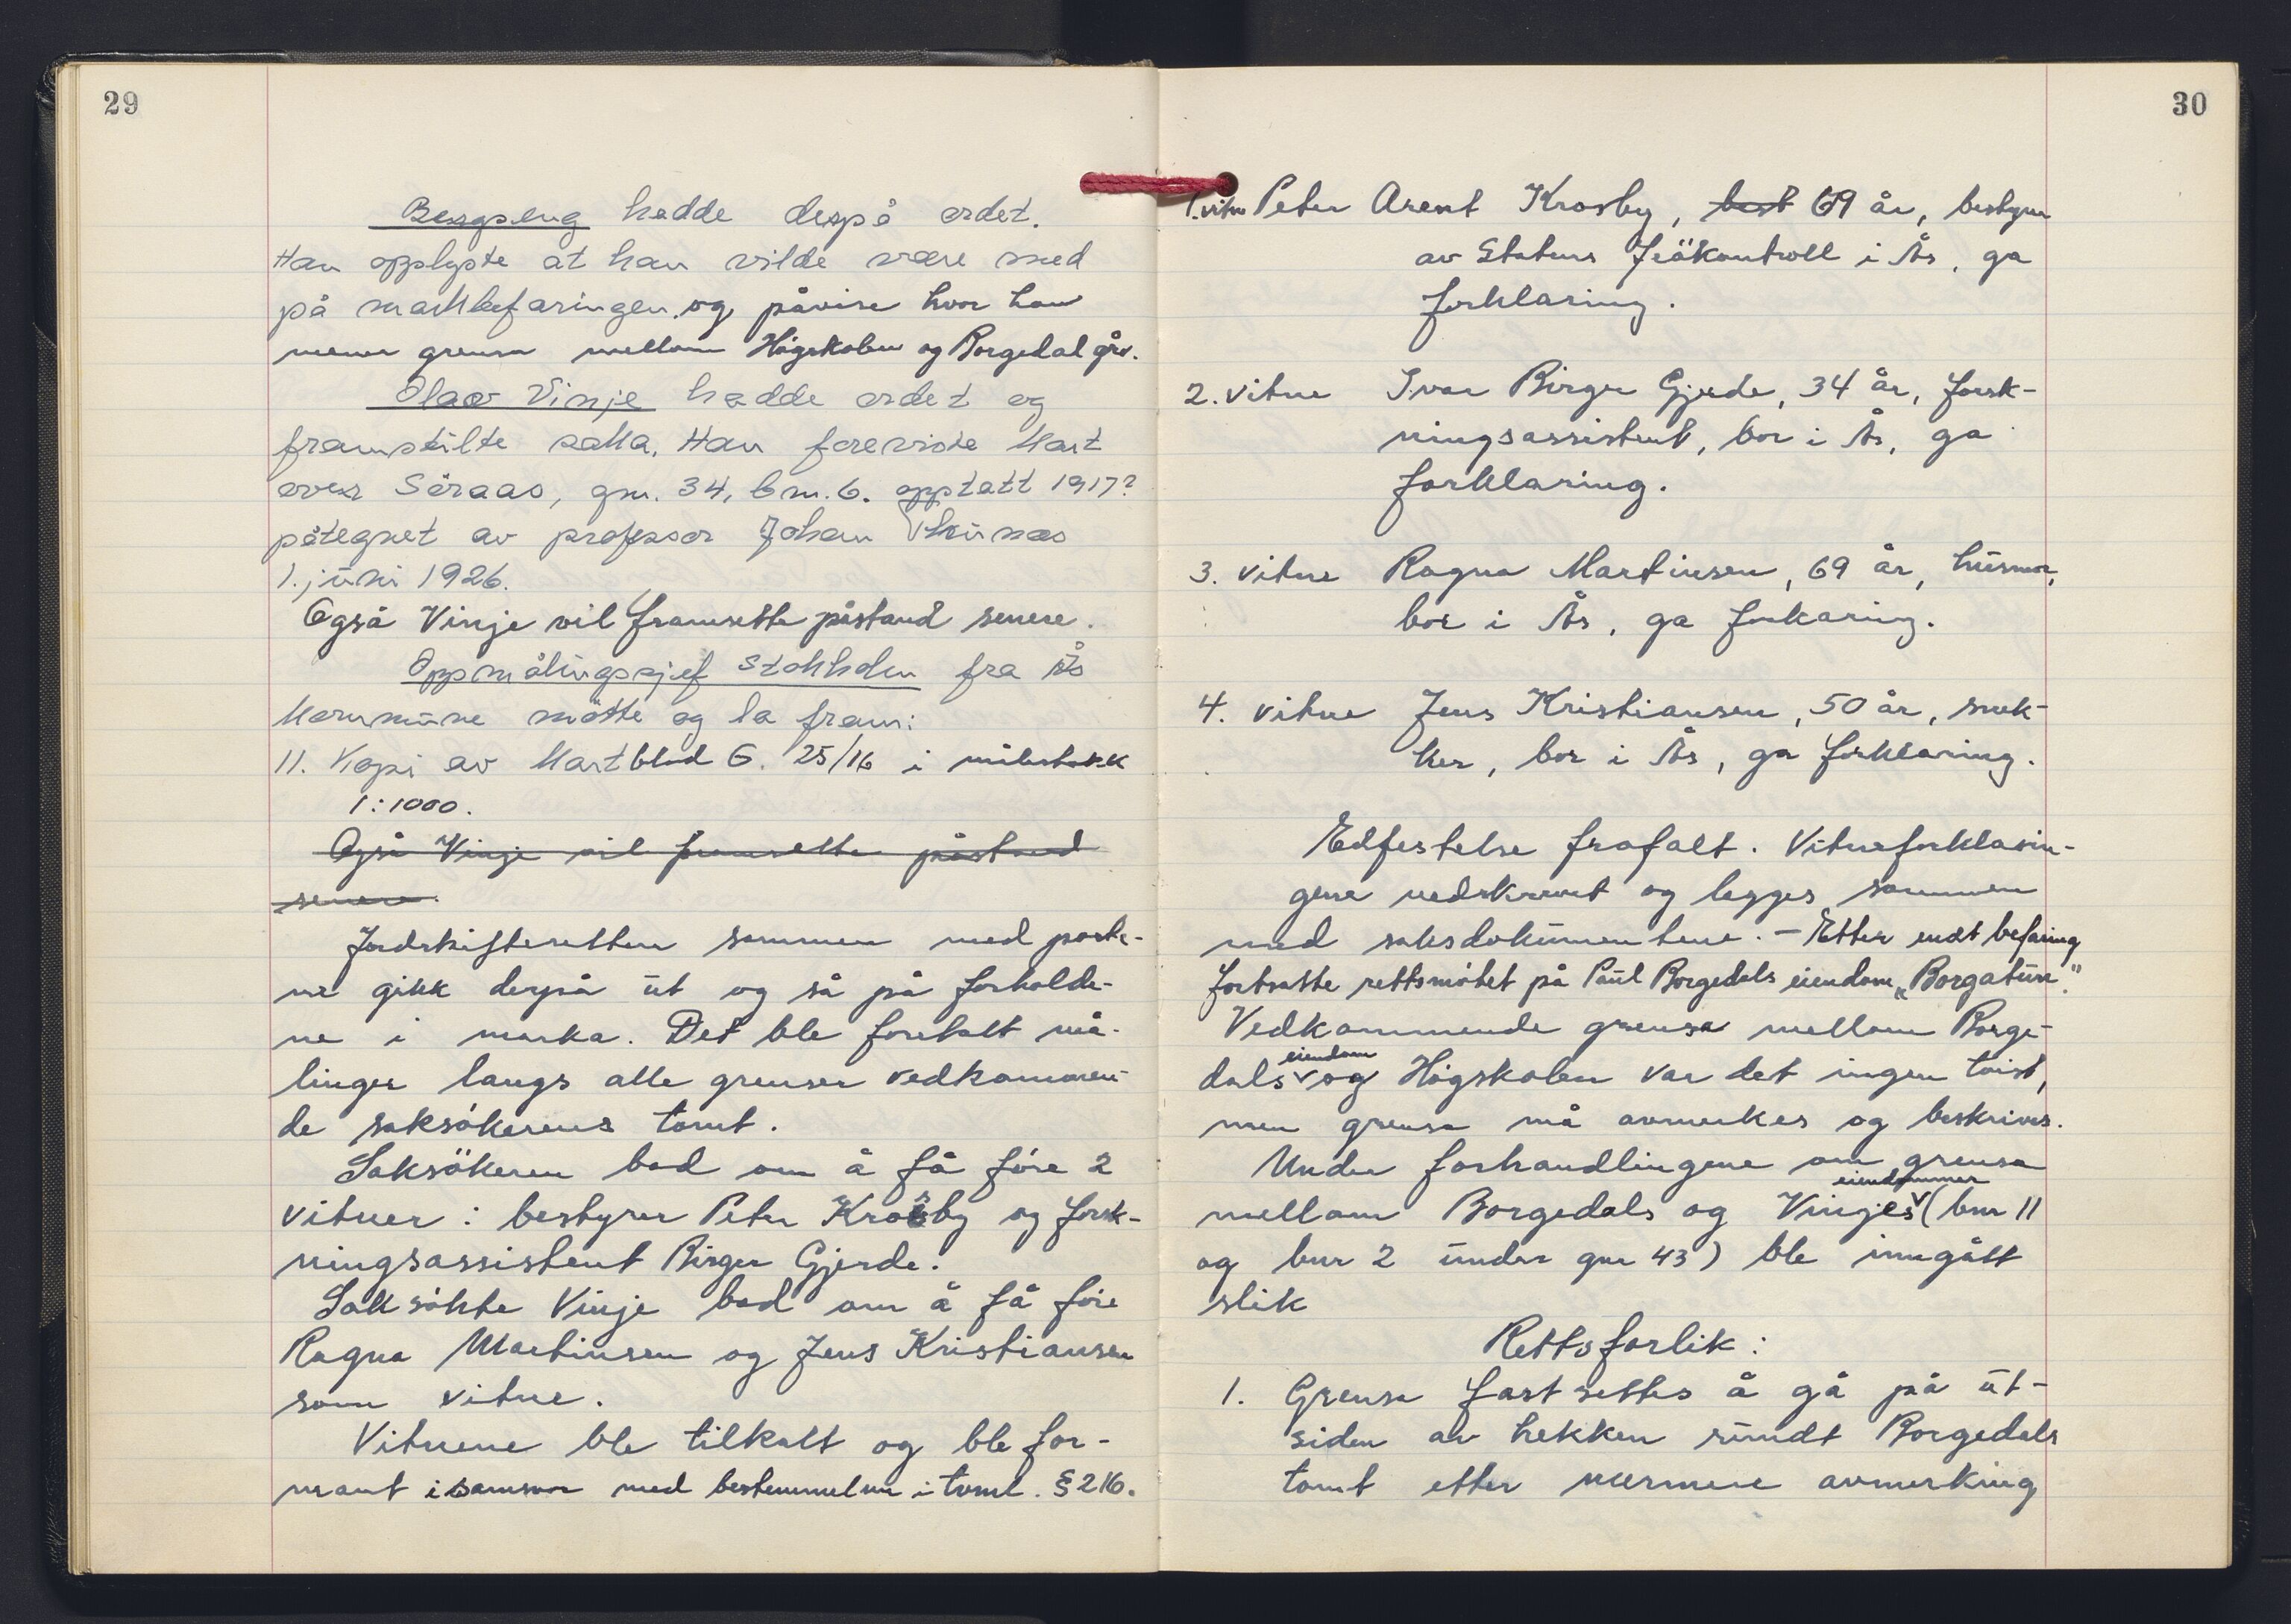 29
Bergseng hadde derpå ordet.
Han opplyste at han vilde være med
på markbefaringen og påvise hvor han
mener grensa mellom Högskolen og Borgedal går.
Olav Vinje hadde ordet og
framstilte saka. Han foreviste kart
over Söraas, gnr. 34, bnr. 6. opptatt 1917?
påtegnet av professor Johan
1. juni 1926.
Også Vinje vil framsette påstand senere.
Oppmålingssjef Stokholm fra Ås
kommune møtte og la fram:
11. Kopi av kartblad G. 25/16 i målestokk
1:1000.
Også Vinje vil framsette påstand
senere.
Jordskifteretten sammen med parte-
ne gikk derpå ut og så på forholde-
ne i marka. Det ble foretatt må-
linger langs alle grenser vedkommen-
de saksökerens tomt.
Saksökeren bad om å få före 2
vitner: bestyrer Peter Krosby og forsk-
ningsassistent Birger Gjerde.
Saksökte Vinje bad om å få före
Ragna Martinsen og Jens Kristiansen
som vitne.
Vitnene ble tilkalt og ble for-
mant i samsvar med bestemmelsene i tvml. § 216.
30
1. vitne Peter Arent Krosby, best 69 år, bestyrer
av Statens Frökontroll i Ås, ga
forklaring.
2. vitne Ivar Birger Gjerde, 34 år, forsk-
ningsassistent, bor i Ås, ga
forklaring.
3. vitne Ragna Martinsen, 69 år, husmor,
bor i Ås, ga forkaring.
4. vitne Jens Kristiansen, 50 år, snek-
ker, bor i Ås, ga forklaring.
Edfestelse frafalt. Vitneforklarin-
gene nedskrevet og legges sammen
med saksdokumentene. – Etter endt befaring
fortsatte rettsmötet på Paul Borgedals eiendom „Borgatun".
Vedkommende grensa mellom Borge-
dals eiendom og Högskolen var det ingen tvist,
men grensa må avmerkes og beskrives.
Under forhandlingene om grensa
mellom Borgedals og Vinjes eiendommer (bnr 11
og bnr 2 under gnr 43) ble inngått
slik
Rettsforlik:
1. Grensa fastsettes å gå på ut-
siden av hekken rundt Borgedals
tomt etter nærmere avmerking